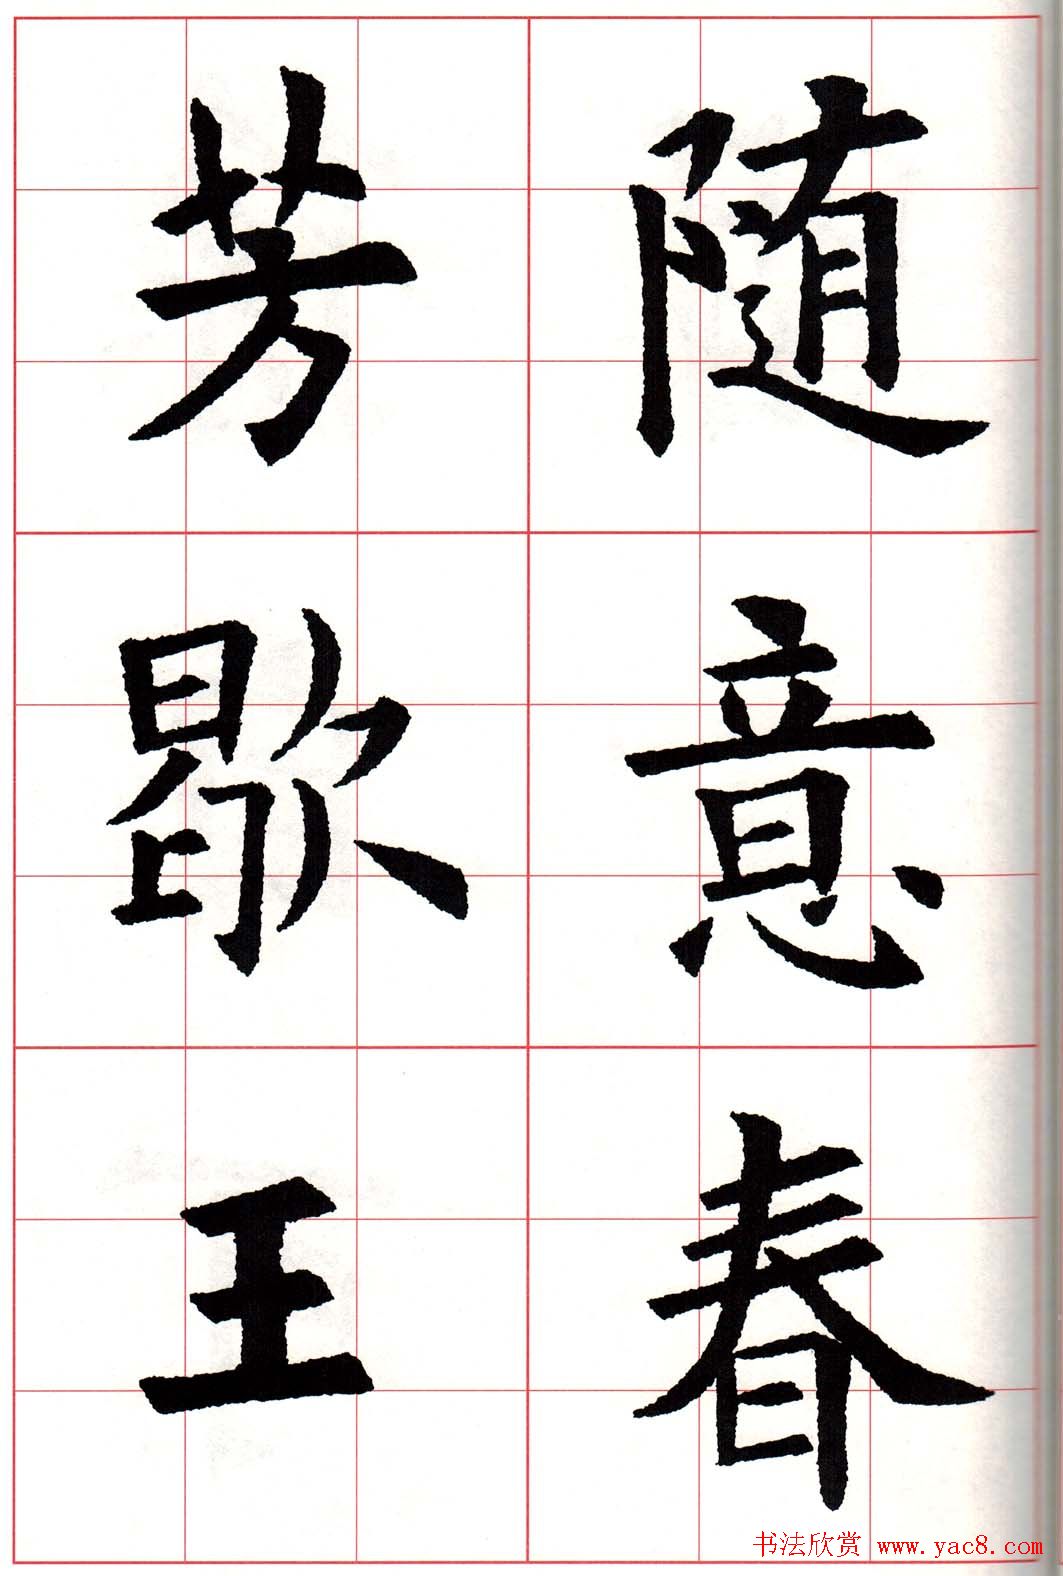 随意春
芳歇王
书法欣赏 www.yac8.com